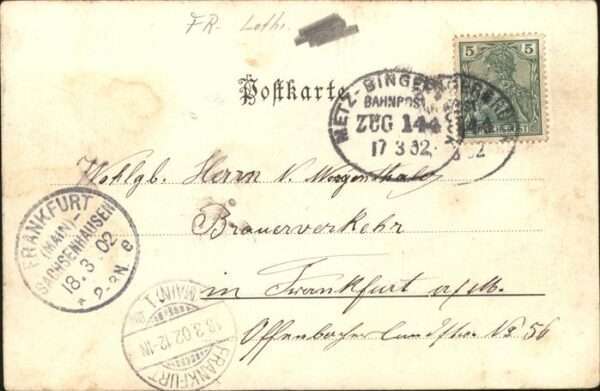 FR- Lothr.
Postkarte
METZ-BINGERBRÜCK
BAHNPOST
ZUG 144
17 3 02
5 5
Wohlgb. Herrn N. Morgenthal
Brauerverkehr
in Frankfurt a/M.
Offenbacher landstr. No 56
FRANKFURT
(MAIN)-
SACHSENHAUSEN
18. 3. 02
* 2-3N. e
FRANKFURT (MAIN) 1
18 3 02 12-1N